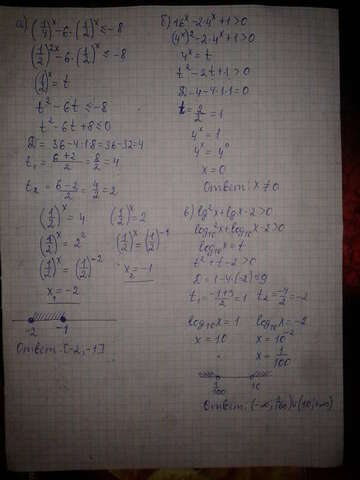 а) (1/4)^x - 6·(1/2)^x ≤ -8
(1/2)^2x - 6·(1/2)^x ≤ -8
(1/2)^x = t
t² - 6t ≤ -8
t² - 6t + 8 ≤ 0
D = 36 - 4·1·8 = 36 - 32 = 4
t₁ = (6+2)/2 = 8/2 = 4
t₂ = (6-2)/2 = 4/2 = 2
(1/2)^x = 4 (1/2)^x = 2
(1/2)^x = 2² (1/2)^x = (1/2)^-1
(1/2)^x = (1/2)^-2 x₂ = -1
x₁ = -2
-2 -1
Ответ: [-2; -1]
б) 16^x - 2·4^x + 1 > 0
(4^x)² - 2·4^x + 1 > 0
4^x = t
t² - 2t + 1 > 0
D = 4 - 4·1·1 = 0
t = 2/2 = 1
4^x = 1
4^x = 4⁰
x = 0
Ответ: x ≠ 0
в) lg²x + lgx - 2 > 0
log₁₀²x + log₁₀x - 2 > 0
log₁₀x = t
t² + t - 2 > 0
D = 1 - 4·(-2) = 9
t₁ = (-1+3)/2 = 1 t₂ = -4/2 = -2
log₁₀x = 1 log₁₀x = -2
x = 10 x = 10^-2
x = 1/100
1/100 10
Ответ: (-∞; 1/100) ∪ (10; +∞)